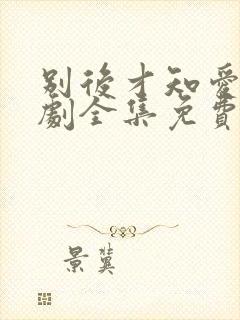 別後才知愛
劇全集免費
景冀